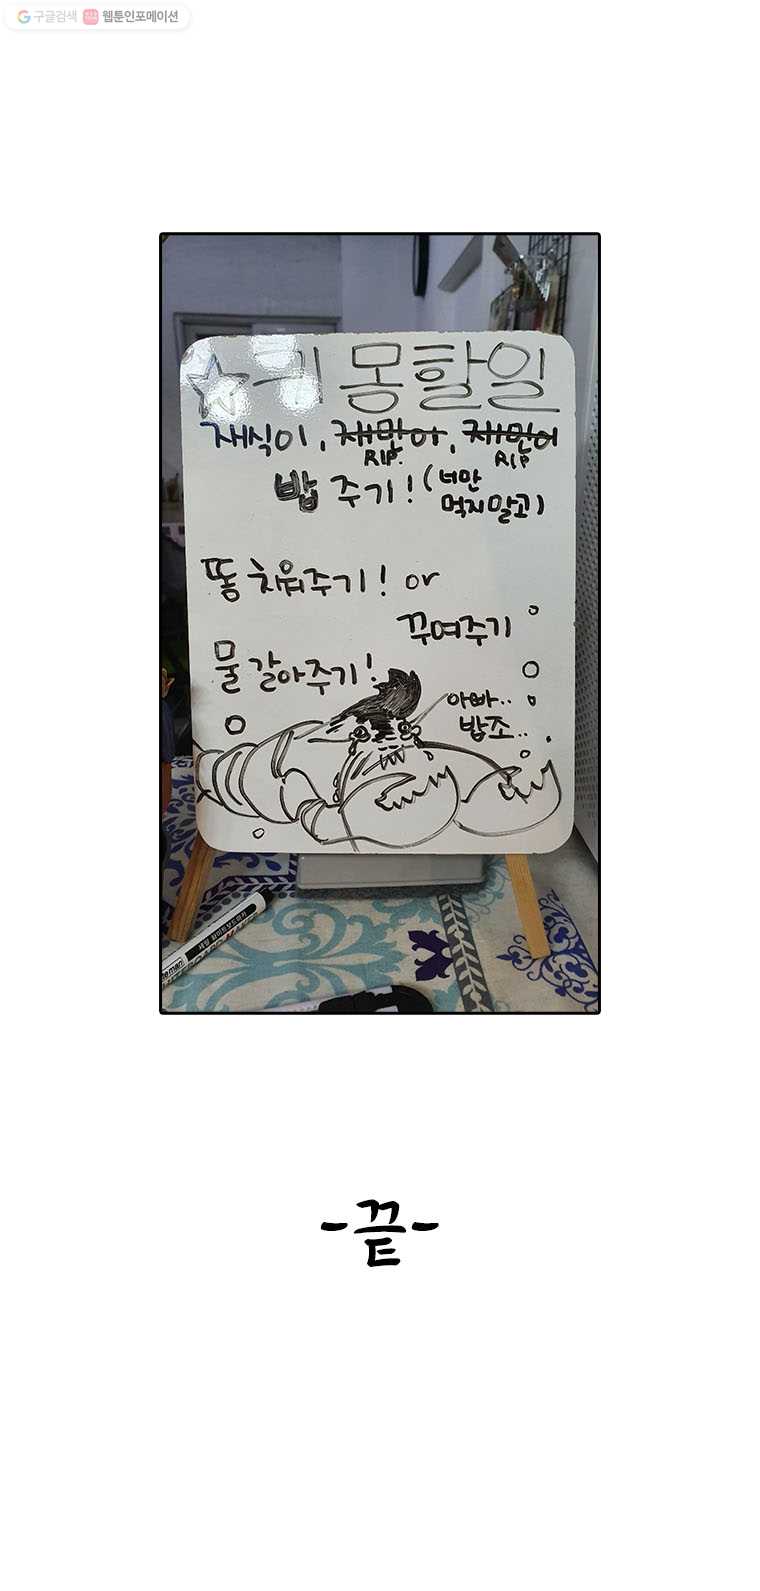 구글검색 웹툰인포메이션
☆귀 몽할일
재식이, 재만이, 재민이
RIP. RIP
밥 주기! (너만
먹지말고)
똥 치워주기! or
꾸며주기
물 갈아주기!
아빠..
밥조..
세일 화이트보드마카
-끝-